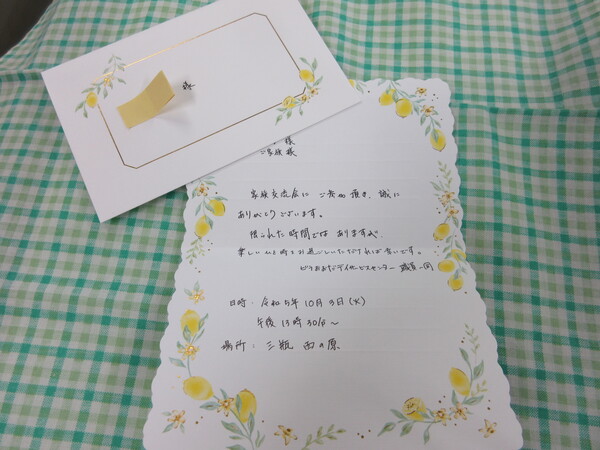 様
様
ご家族 様
家族交流会に ご参加頂き、誠に
ありがとうございます。
限られた時間では ありますが
楽しいひと時をお過ごしいただければ幸いです。
デイサービスセンター 職員一同
日時: 令和5年 10月3日(火)
午後 13時30分〜
場所: 三瓶 西の原